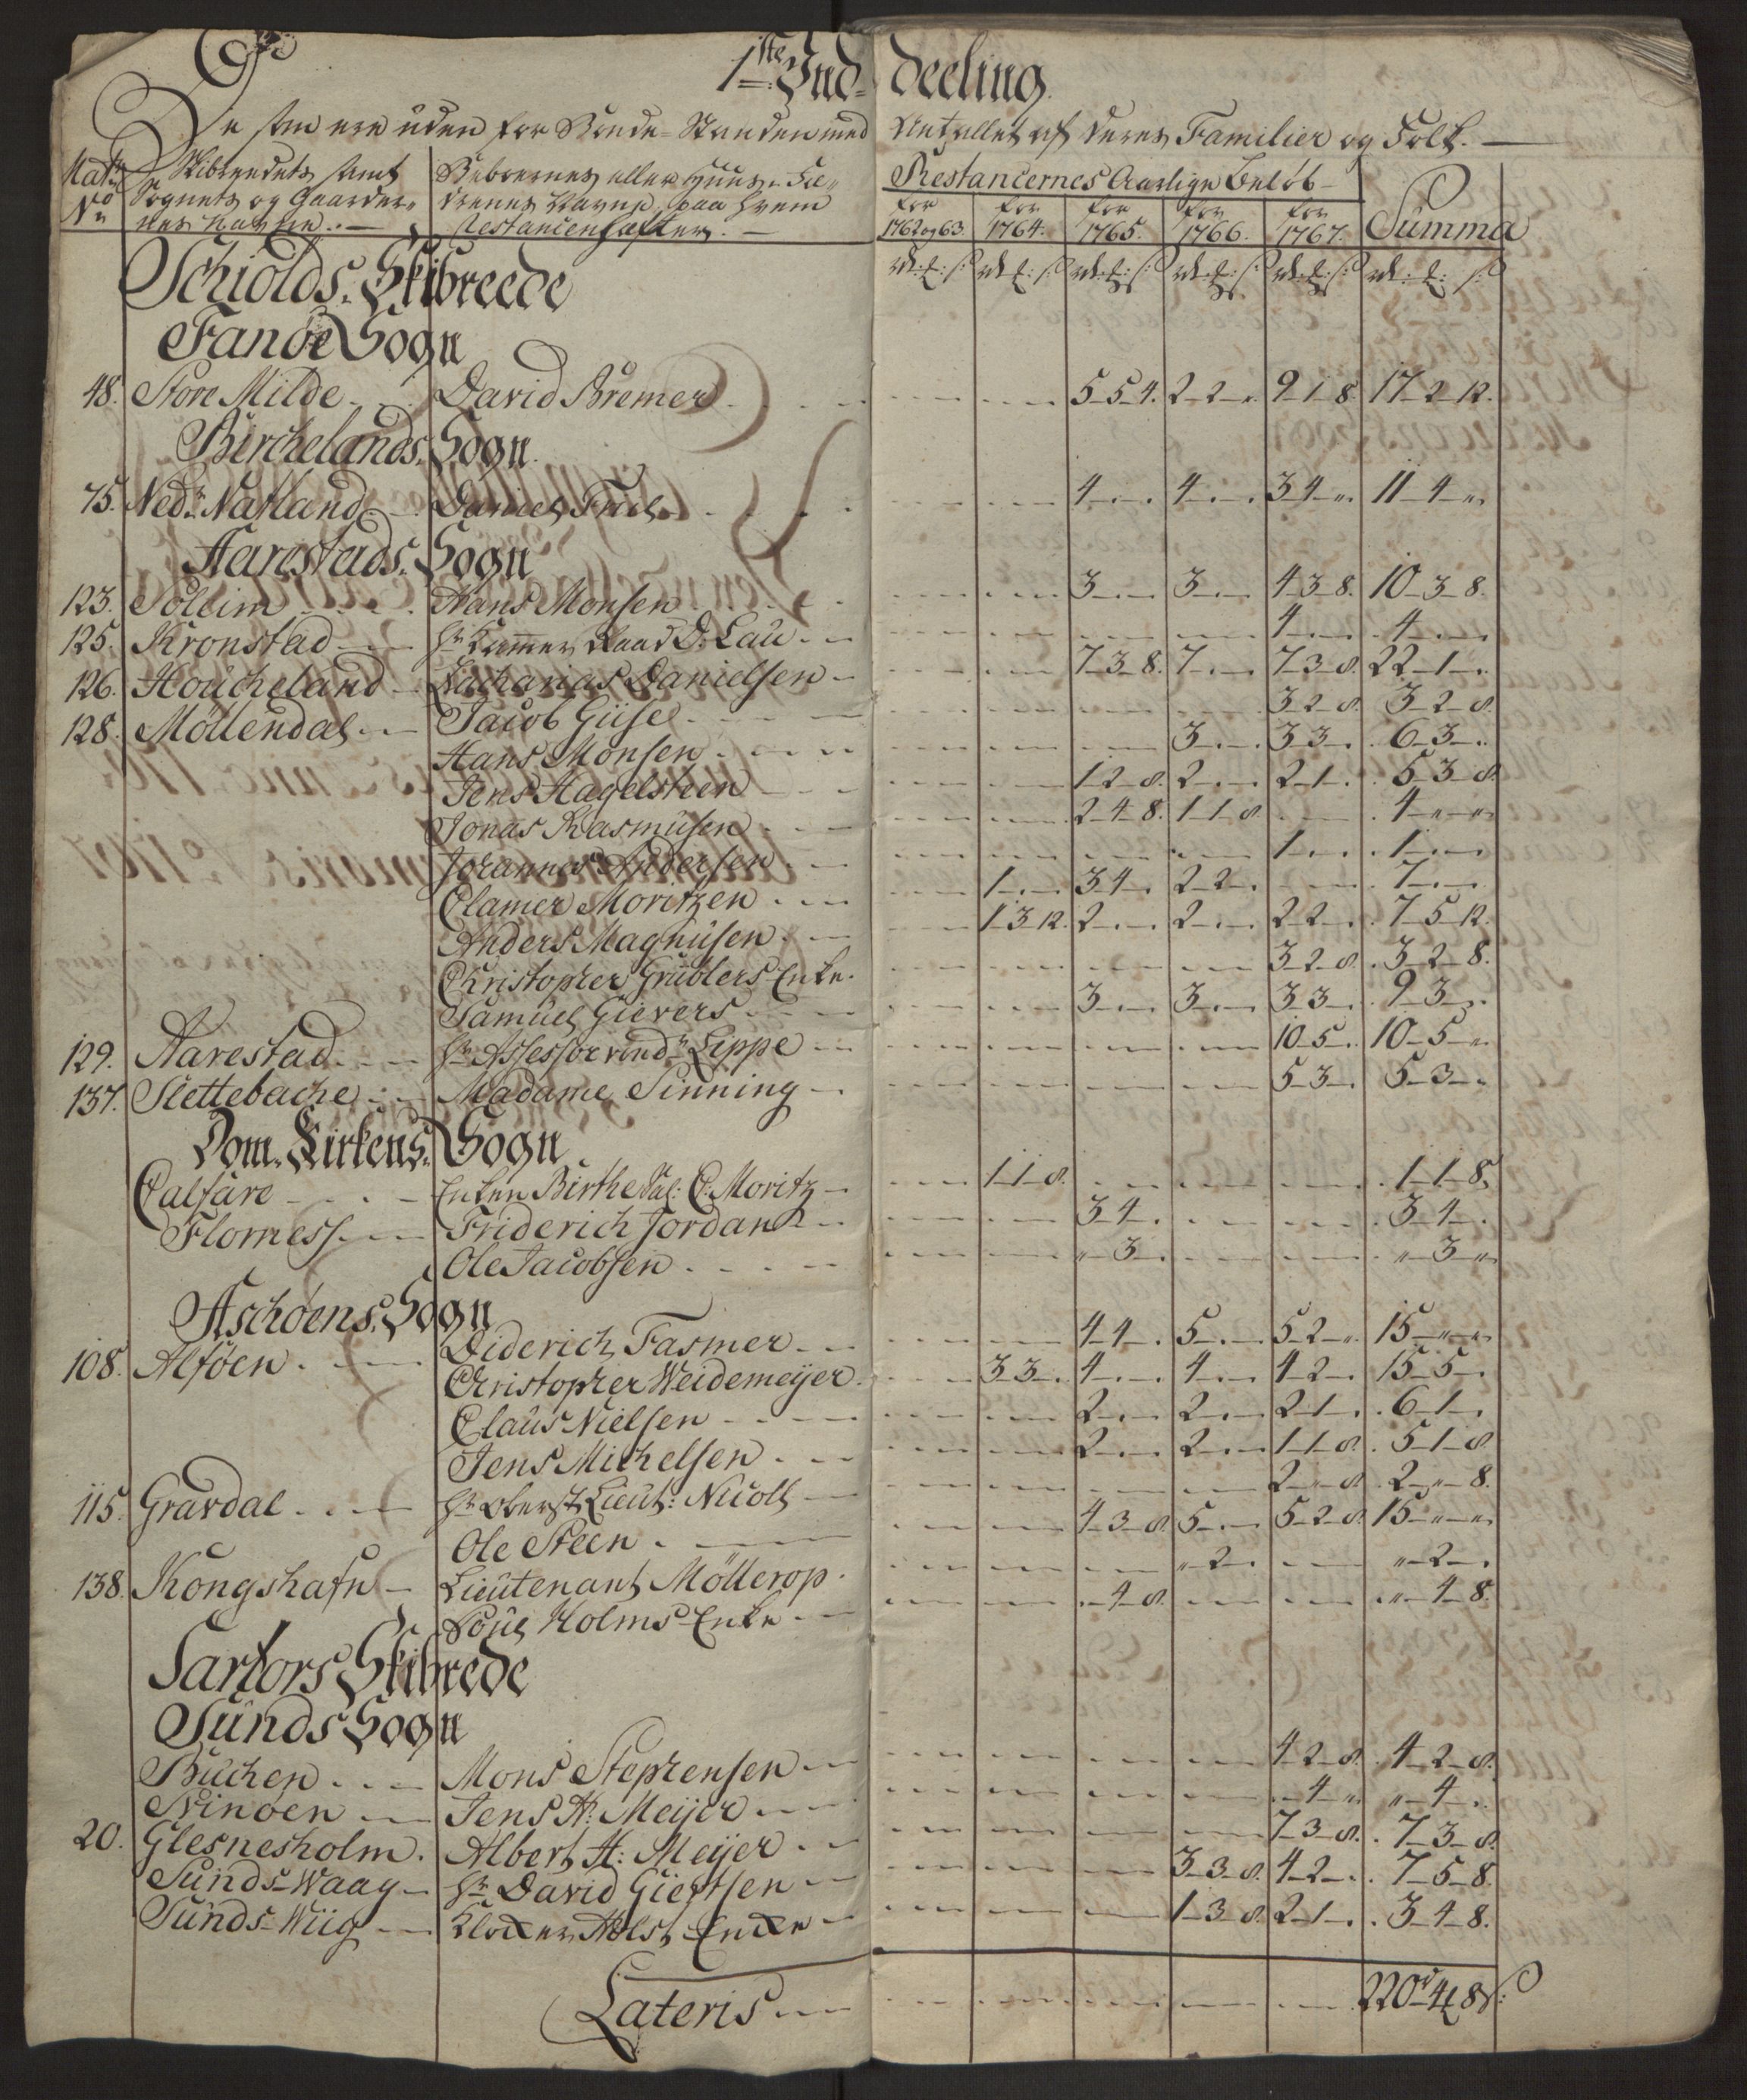 1ste Ind- deeling
De som ere uden for Bonde-Standen med Antallet af deres Familier og Folk. —
Matr No Skibreedets samt Sognets og Gaardernes Navne. — Beboernes eller Huus-Fædrenes Navne, paa hvem Restancen hæfter. — Restancernes Aarlige Beløb — Summa
for 1762 og 63. for 1764. for 1765. for 1766. for 1767.
rdr: ℔: s: rdr ℔: s: rdr: ℔: s: rdr: ℔: s: rdr: ℔: s: rdr: ℔: s:
Schiolds. Skibreede
Fanöe Sogn
48. Store Milde David Bremer 5-5-4. 2-2-„. 9-1-8. 17-2-12.
Birchelands. Sogn.
75. Nedr Natland Daniel Friel 4-.-. 4-.-. 3-4-„. 11-4-„.
Aarestads. Sogn
123. Solleim Hans Monsen 3-.- 3-.- 4-3-8. 10-3-8.
125. Kronstad Hr Kammer Raad D: Lau 4-.- 4-.-
126. Houcheland Zacharias Danielsen 7-3-8. 7-.- 7-3-8. 22-1-.
128. Möllendal Jacob Giise 3-2-8. 3-2-8.
Hans Monsen 3-.- 3-3-. 6-3-.
Jens Hagelsteen 1-2-8. 2-.- 2-1-. 5-3-8.
Jonas Rasmusen 2-4-8. 1-1-8. 4-„-„
Johannes Andersen 1-.-. 1-.-
Clamer Moritzen 1-.- 3-4-. 2-2-. 7-.-
Anders Magnusen 1-3-12. 2-.- 2-.- 2-2-. 7-5-12.
Christopher Grüblers Enke. 3-2-8. 3-2-8.
Samuel Gievers 3-.- 3-.- 3-3-. 9-3-.
129. Aarestad Hr Assessor vind: Lippe 10-5-. 10-5-„.
137. Slettebache Madame Sinning 5-3-. 5-3-.
Dom. Kirkens. Sogn
Calfare Enken Birthe Sal: C: Moritz 1-1-8. 1-1-8.
Florness Friderich Jordan 3-4-. 3-4-.
Ole Jacobsen „-3-. „-3-„
Aschöens. Sogn
108. Alföen Diderich Fasmer 4-4-. 5-.- 5-2-„. 15-„-„
Christopher Weidemeÿer 3-3-. 4-.- 4-.- 4-2-. 15-5-.
Claus Nielsen 2-.- 2-.- 2-1-. 6-1-.
Jens Michelsen 2-.- 2-.- 1-1-8. 5-1-8
115. Gravdal Hr Oberst Lieut: Nicoll 2-„-8. 2-„-8.
Ole Steen 4-3-8. 5-.- 5-2-8. 15-„-„
138. Kongshafn Lieutenant Möllerop. „-2-. „-2-.
Poul Holms Enke .-4-8. „-4-8.
Sartors Skibrede
Sunds Sogn
Buchen Mons Stephensen 4-2-8. 4-2-8.
Svinöen Jens A: Meÿer .-4-„. „-4-.
20. Glesnesholm. Albert A: Meÿer 7-3-8. 7-3-8.
Sunds-Waag Hr David Giertsen 3-3-8. 4-2-. 7-5-8.
Sunds-Wiig Klocker Holst Encke 1-3-8. 2-1-. 3-4-8.
Lateris 220r 4℔ 8s: